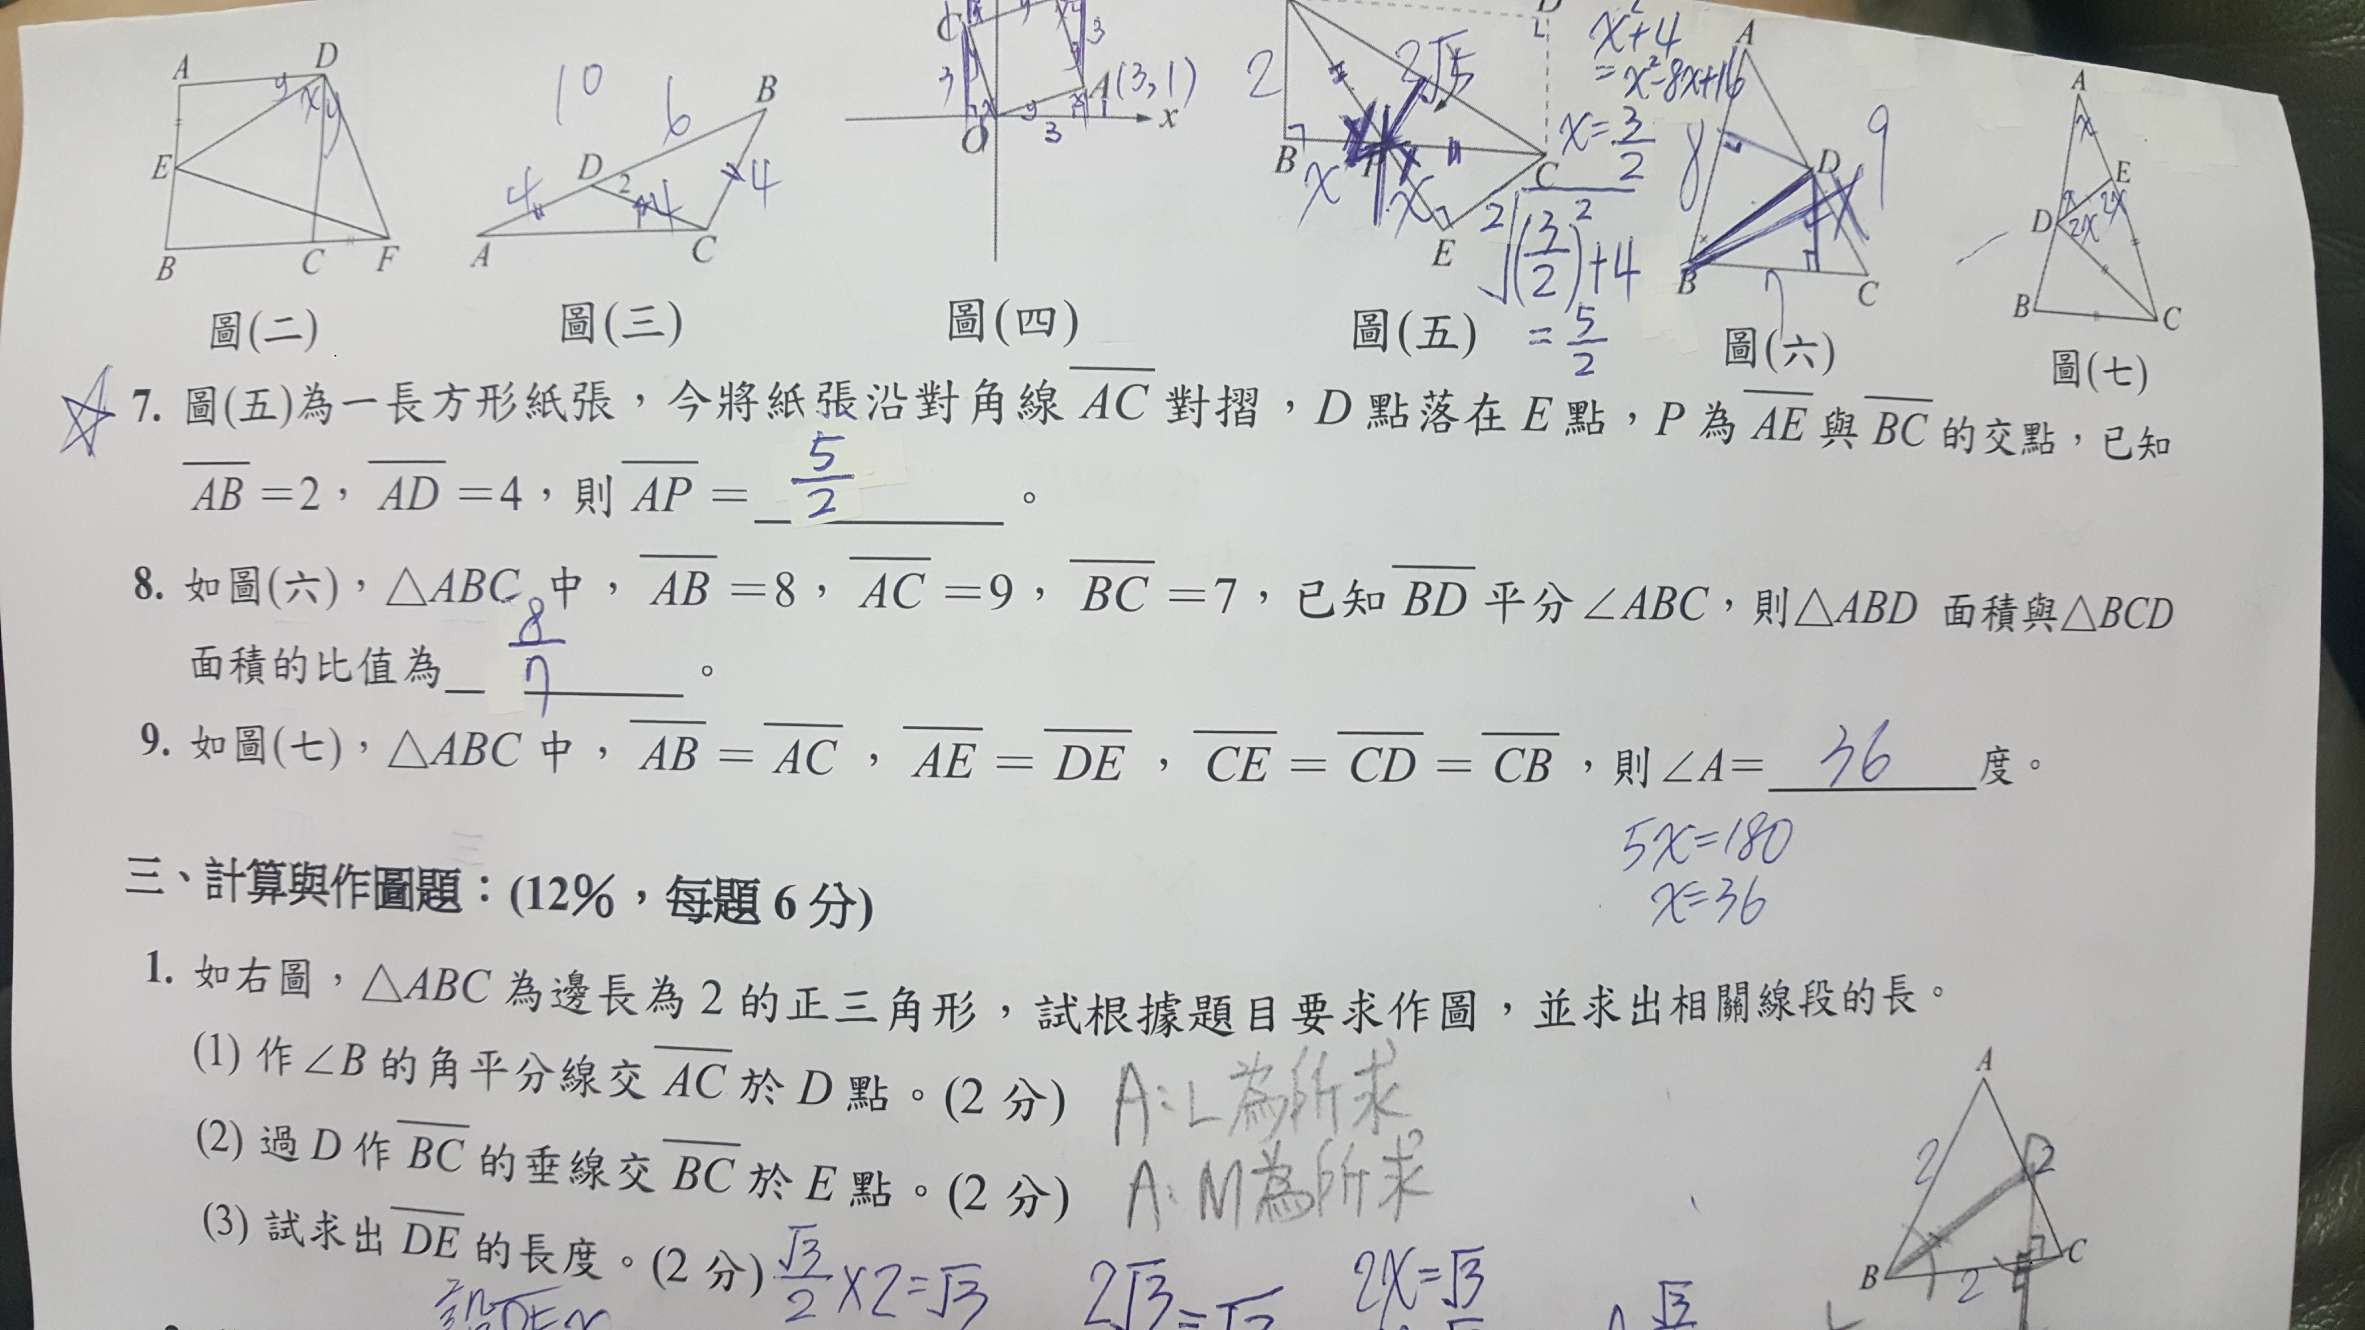 A D E B C F
10
6
4
4
4
2
A B C D
C
3
3
A(3,1)
O
3
x
B
2
2√5
x
x
C
E
D
x²+4
=x²-8x+16
x=3/2
²√(3/2)²+4
=5/2
A
8
9
D
B
7
C
A
x
E
D
2x
2x
B
C
圖(二) 圖(三) 圖(四) 圖(五) 圖(六) 圖(七)
7. 圖(五)為一長方形紙張,今將紙張沿對角線 AC 對摺,D 點落在 E 點,P 為 AE 與 BC 的交點,已知
AB=2,AD=4,則 AP= 5/2 。
8. 如圖(六),△ABC 中,AB=8,AC=9,BC=7,已知 BD 平分∠ABC,則△ABD 面積與△BCD
面積的比值為 8/7 。
9. 如圖(七),△ABC 中,AB=AC,AE=DE,CE=CD=CB,則∠A= 36 度。
5x=180
x=36
三、計算與作圖題:(12%,每題 6 分)
1. 如右圖,△ABC 為邊長為 2 的正三角形,試根據題目要求作圖,並求出相關線段的長。
(1) 作∠B 的角平分線交 AC 於 D 點。(2 分) A:L為所求
(2) 過 D 作 BC 的垂線交 BC 於 E 點。(2 分) A:M為所求
(3) 試求出 DE 的長度。(2 分) √3/2×2=√3 2√3 2x=√3 √3/2
A
2
D
2
B
2
E
C